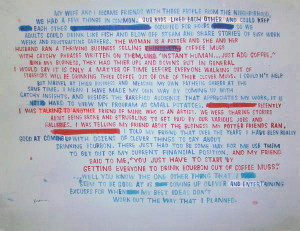 MY WIFE AND I BECAME FRIENDS WITH THREE PEOPLE FROM THE NEIGHBORHOOD,
WE HAD A FEW THINGS IN COMMON. OUR KIDS LIKED EACH OTHER AND COULD KEEP
EACH OTHER FOR HOURS SO
ADULTS COULD DRINK LIKE FISH AND BLOW OFF STEAM AND SHARE STORIES OF DAY WORK
THE WOMAN IS A POTTER AND SHE AND HER
HUSBAND RAN A THRIVING BUSINESS SELLING COFFEE MUGS
WITH CATCHY PHRASES WRITTEN ON THEM LIKE "INSTANT HUMAN... JUST ADD COFFEE."
BUSINESS, THEY HAD THEIR UPS AND DOWNS BUT IN GENERAL
I WOULD SAY IT IS ONLY A MATTER OF TIME BEFORE EVERYONE WALKING OUT OF
WILL BE DRINKING THEIR COFFEE OUT OF ONE OF THEIR CLEVER MUGS. I COULDN'T HELP
BUT THINK OF THEIR SUCCESS AND MY OWN CAREER AT THE
SAME TIME. I MEAN I HAVE MADE MY OWN WAY BY COMING UP WITH
CATCHY INSIGHTS AND INSIDER THE BAREFOOT ALCOHOLIC THAT APPARENTLY MY WORK, IT IS
HARD TO VIEW MY PROGRAM AT SMALL POTATOES. RECENTLY
I WAS TALKING TO ANOTHER FRIEND OF MINE WHO IS AN ARTIST. WE WERE SHARING STORIES
ABOUT BEING BROKE AND STRUGGLING TO GET PAID BY OUR VARIOUS JOBS AND
GALLERIES. I WAS TELLING MY FRIEND ABOUT THE BUSINESS MY POTTER FRIENDS RAN,
I TOLD MY FRIEND THAT OVER THE YEARS I HAVE BEEN REALLY
GOOD AT COMING UP WITH DOZENS OF CLEVER THINGS TO SAY ABOUT
DRINKING BOURBON, THERE JUST HAS TO BE SOME WAY FOR ME USE THEM
TO GET OUT OF MY CURRENT FINANCIAL POSITION. AND MY FRIEND
SAID TO ME, "YOU JUST HAVE TO START BY
GETTING EVERYONE TO DRINK BOURBON OUT OF COFFEE MUGS."
WELL YOU KNOW THE ONE OTHER THING THAT I
SEEM TO BE GOOD AT IS COMING UP CLEVER AND ENTERTAINING
EXCUSES FOR WHEN MY BEST IDEAS DON'T
WORK OUT THE WAY THAT I PLANNED.